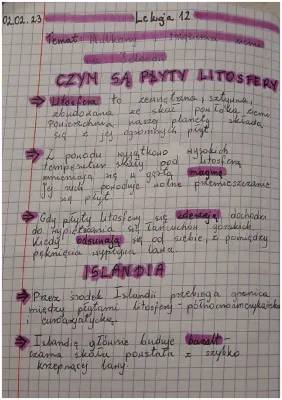 02.02.23 Lekcja 12
Temat: Wulkany i trzęsienia ziemi
CZYM SĄ PŁYTY LITOSFERY
Litosfera to zewnętrzna, sztywna,
zbudowana ze skał powłoka Ziemi
Powierzchnia naszej planety składa
się z jej ogromnych płyt.
Z powodu wyjątkowo wysokich
temperatur skały pod litosferą
zmieniają się w gęstą magmę
jej ruch powoduje wolne przemieszczanie
się płyt
Gdy płyty litosfery się zderzają dochodzi
do wypiętrzania się łańcuchów górskich
Kiedy odsuwają się od siebie, z pomiędzy
pęknięcia wypływa lawa.
ISLANDIA
Przez środek Islandii przebiega granica
między płytami litosfery - północnoamerykańską
i euroazjatycką.
Islandię głównie buduje bazalt -
czarna skała powstała z szybko
krzepnącej lawy.